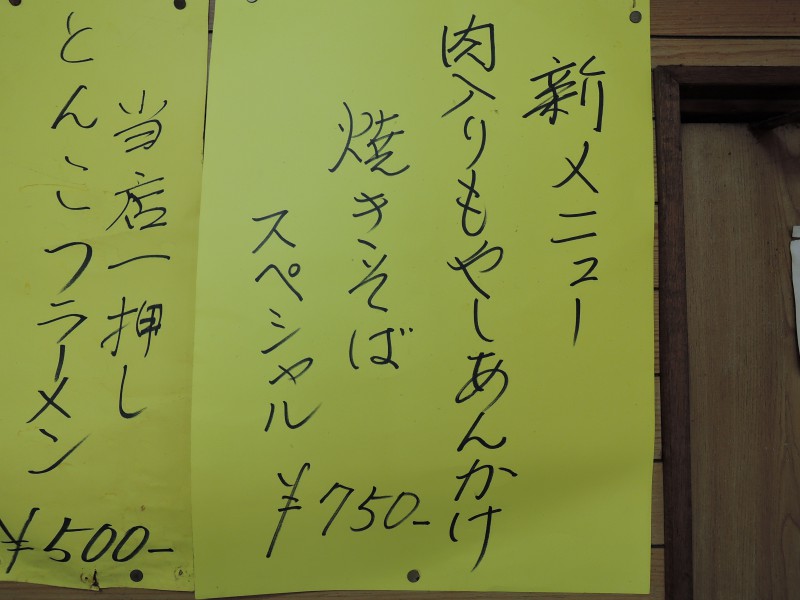 新メニュー
肉入りもやしあんかけ
焼きそば
スペシャル
¥750-
当店一押し
とんこつラーメン
¥500-